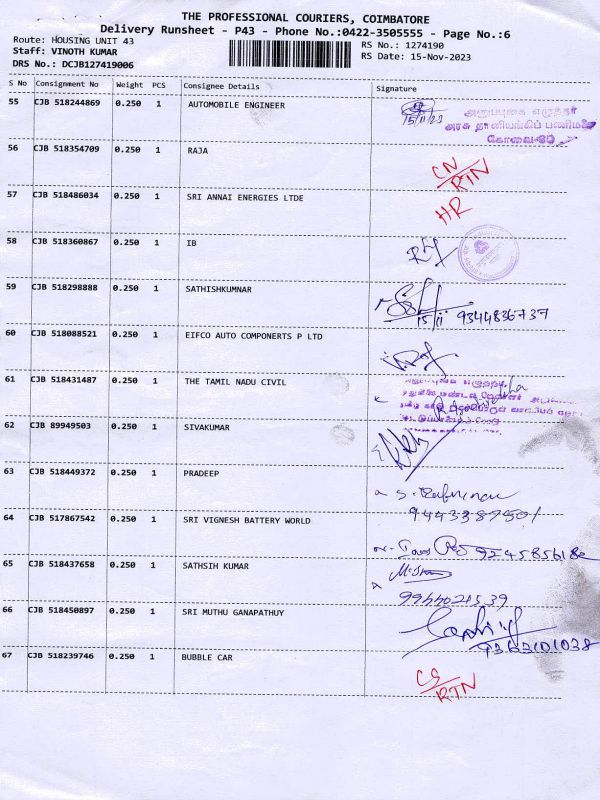 THE PROFESSIONAL COURIERS, COIMBATORE
Delivery Runsheet - P43 - Phone No.:0422-3505555 - Page No.:6
Route: HOUSING UNIT 43
RS No.: 1274190
Staff: VINOTH KUMAR
RS Date: 15-Nov-2023
DRS No.: DCJB127419006
S No Consignment No Weight PCS Consignee Details Signature
55 CJB 518244869 0.250 1 AUTOMOBILE ENGINEER 15/11/23
அனுப்புகை எழுத்தர்
அரசு தானியங்கிப் பணிமனை
கோவை-
56 CJB 518354709 0.250 1 RAJA CN/RTN
57 CJB 518486034 0.250 1 SRI ANNAI ENERGIES LTDE HR
58 CJB 518360867 0.250 1 IB
59 CJB 518298888 0.250 1 SATHISHKUMNAR 15/11 9344836737
60 CJB 518088521 0.250 1 EIFCO AUTO COMPONERTS P LTD
61 CJB 518431487 0.250 1 THE TAMIL NADU CIVIL
62 CJB 89949503 0.250 1 SIVAKUMAR
63 CJB 518449372 0.250 1 PRADEEP
9443387501
64 CJB 517867542 0.250 1 SRI VIGNESH BATTERY WORLD 9245856182
65 CJB 518437658 0.250 1 SATHSIH KUMAR
66 CJB 518450897 0.250 1 SRI MUTHU GANAPATHUY
9363101038
67 CJB 518239746 0.250 1 BUBBLE CAR CS/RTN